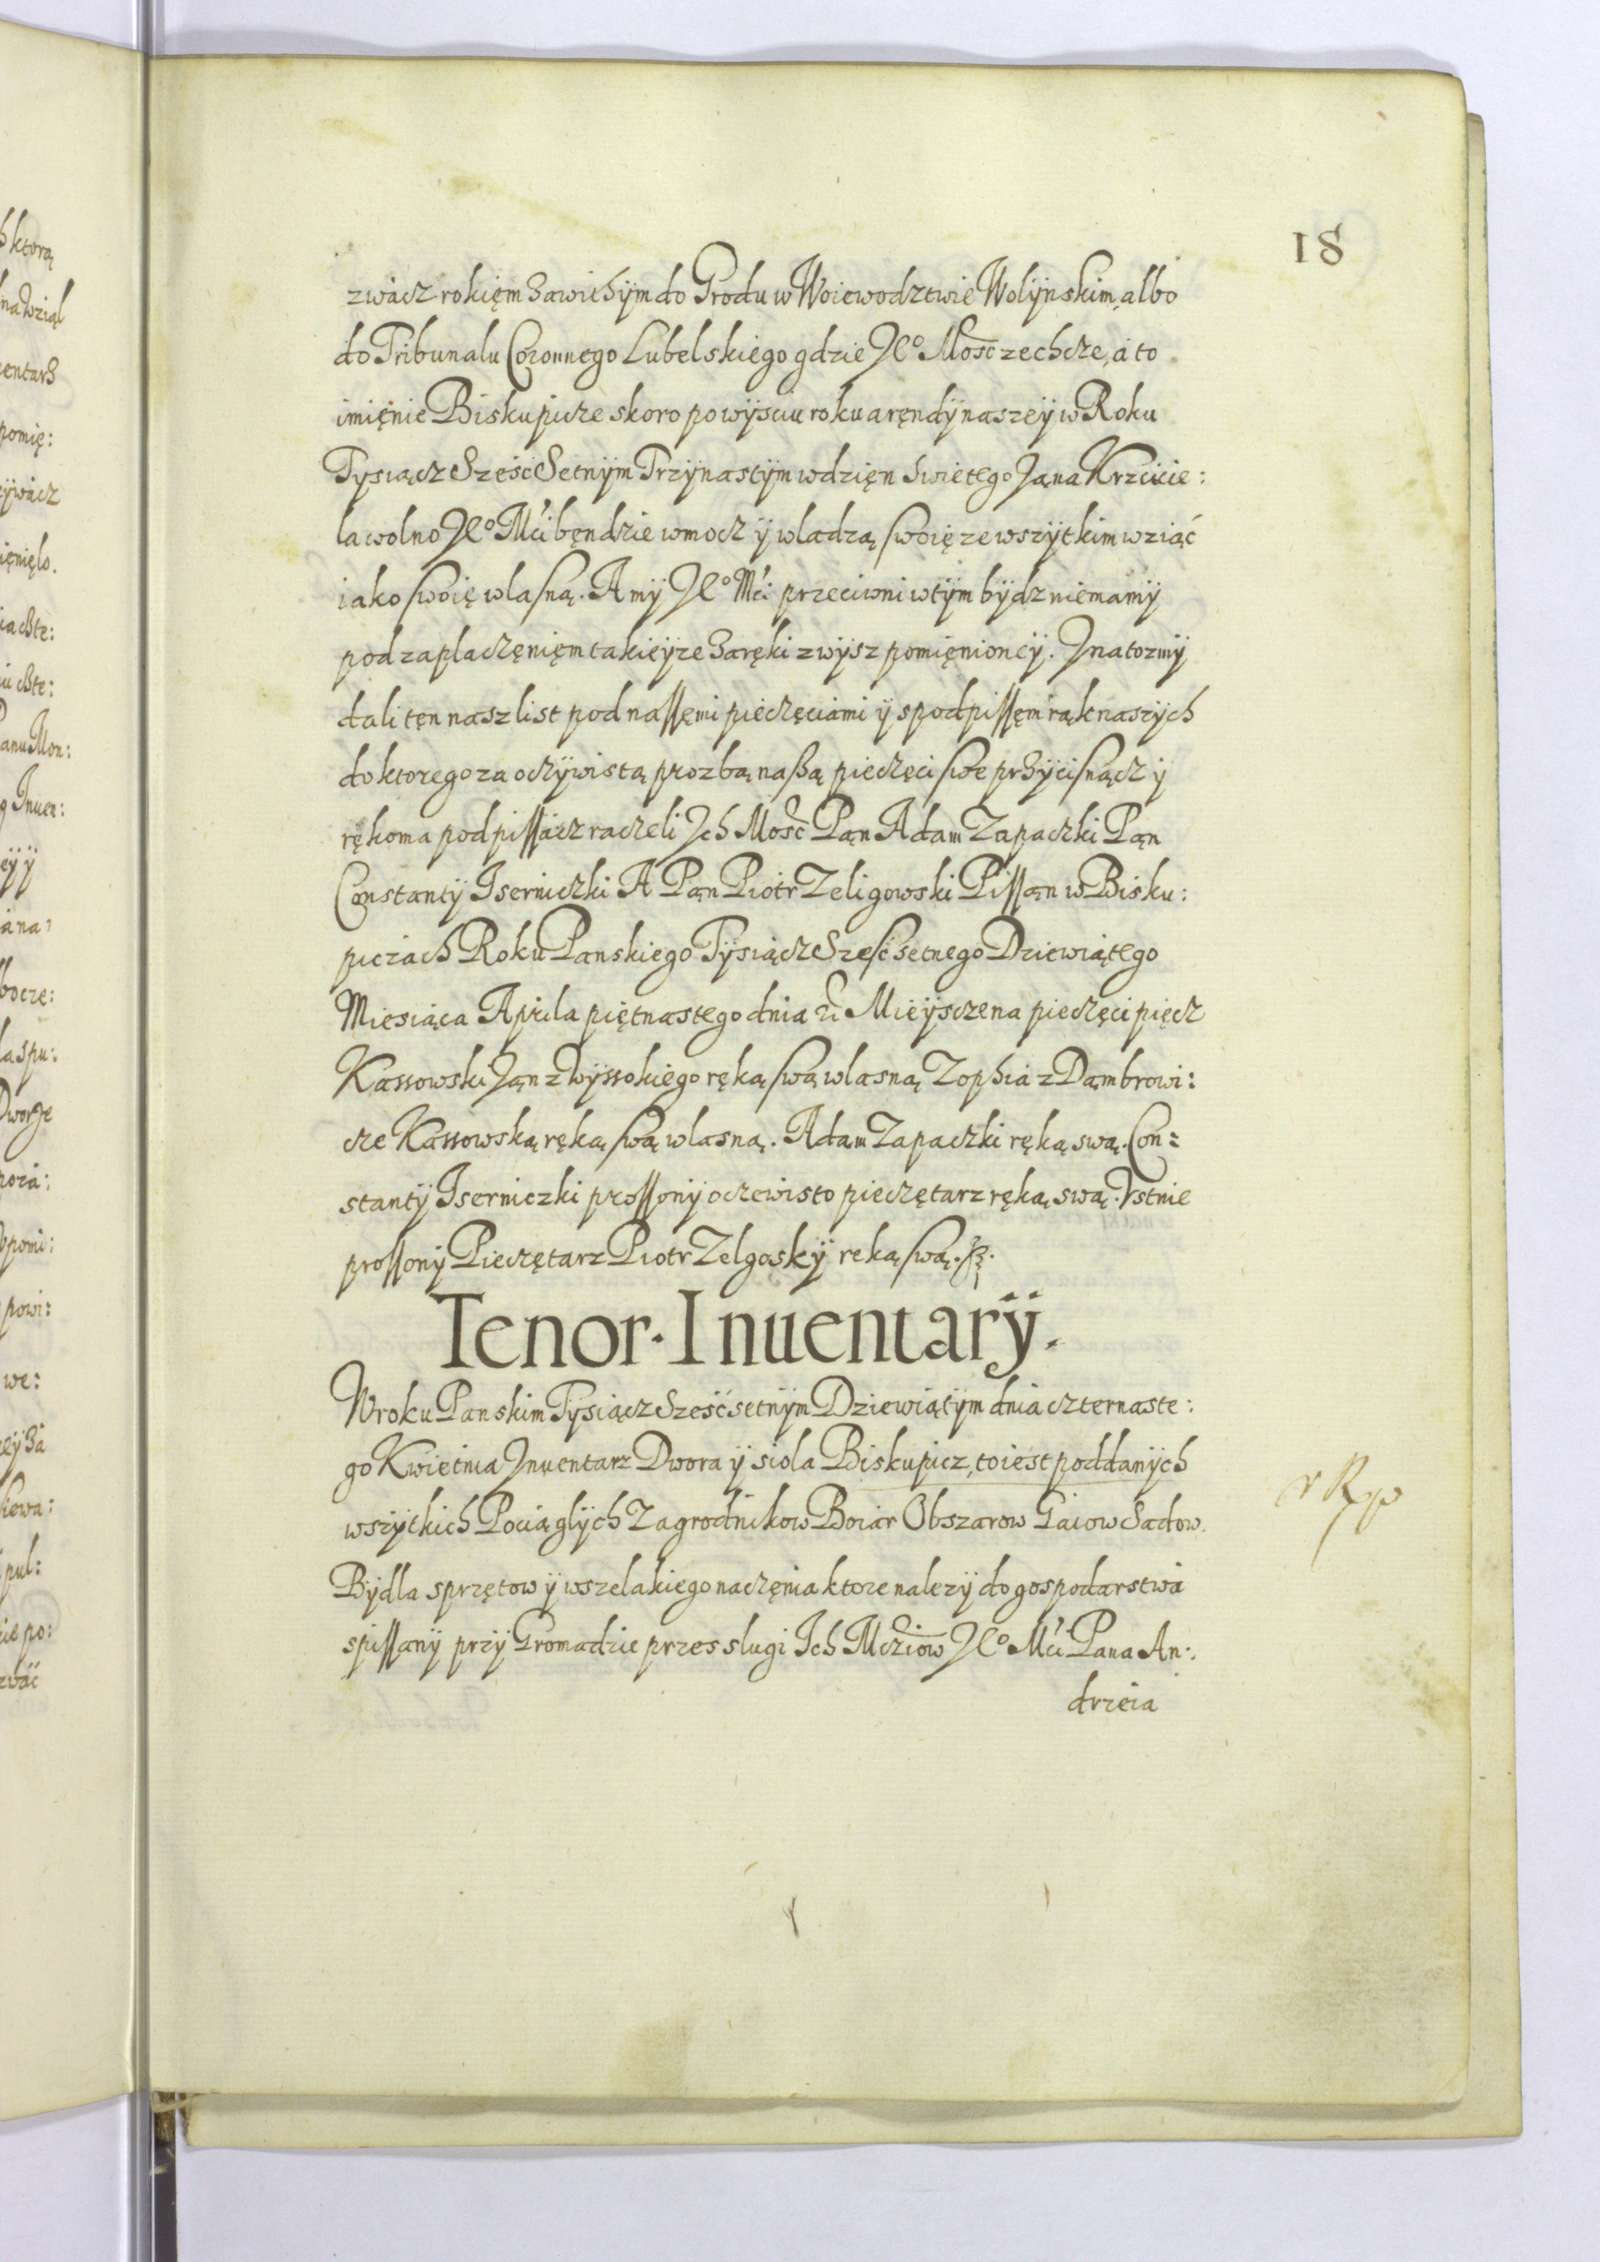 18
zwácz rokięm Zawithÿm do Grodu w Woiewodztwie Wolÿnskim, albo
do Tribunalu Coronnego Lubelskiego gdzie Je⁰ Mosc zechcze, á to
imięnie Biskupicze skoro po wÿsciu roku aręndÿ naszeÿ w Roku
Tysiącz Sześć Setnÿm Trzÿnastÿm wdzięn Swietego Jąna Krzcicie:
la wolno Je⁰ Mći będzie wmocz ÿ wladzą swoię ze wszÿtkim wziąć
iako swoię wlasną. A mÿ Je⁰ Mći przeciwni wtÿm bÿdz niemamÿ
pod zaplaczęnięm takieÿze Zaręki zwÿsz pomięnioneÿ. Jna tozmÿ
dali tęn nasz list pod naszęmi pieczęciami ÿ spodpissęm rąk naszÿch
do ktorego za oczÿwistą prozbą naßą pieczęci swe prZÿcisnącz ÿ
rękoma podpissácz raczeli Jch Mosc Pąn Adam Zapaczki Pąn
Constantÿ Iserniczki A Pąn Piotr Zeligowski Pissąn w Bisku:
piczách Roku Panskiego Tÿsiącz Szescsetnego Dziewiątego
Miesiąca Aprila piętnastego dnia Mieÿscze na pieczęci pięcz
Kassowski Ján z Wÿssokiego ręką swą wlasną Zophia z Dąmbrowi:
cze Kassowską ręką swą wlasną. Adam Zapaczki ręką swą. Con:
stantÿ Iserniczki prossonÿ oczewisto pieczętarz ręką swą. Vstnie
prossonÿ Pieczętarz Piotr Zelgoskÿ reką swą.
Tenor. Inuentarÿ.
W roku Panskim Tysiącz Sześćsetnÿm Dziewiątÿm dnia czternaste:
go Kwietnia Jnuentarz Dwora ÿ siola Biskupicz, to iest poddanÿch
wszÿtkich Pociąglÿch Zagrodnikow Boiar Obszarow Gaiow Sadow.
Bÿdla sprzętow ÿ wszelakiego naczęnia ktore nalezÿ do gospodarstwá
spissanÿ przÿ Gromadzie przes slugi Ich Mcziow Je⁰ Mći Pana An:
drzeia